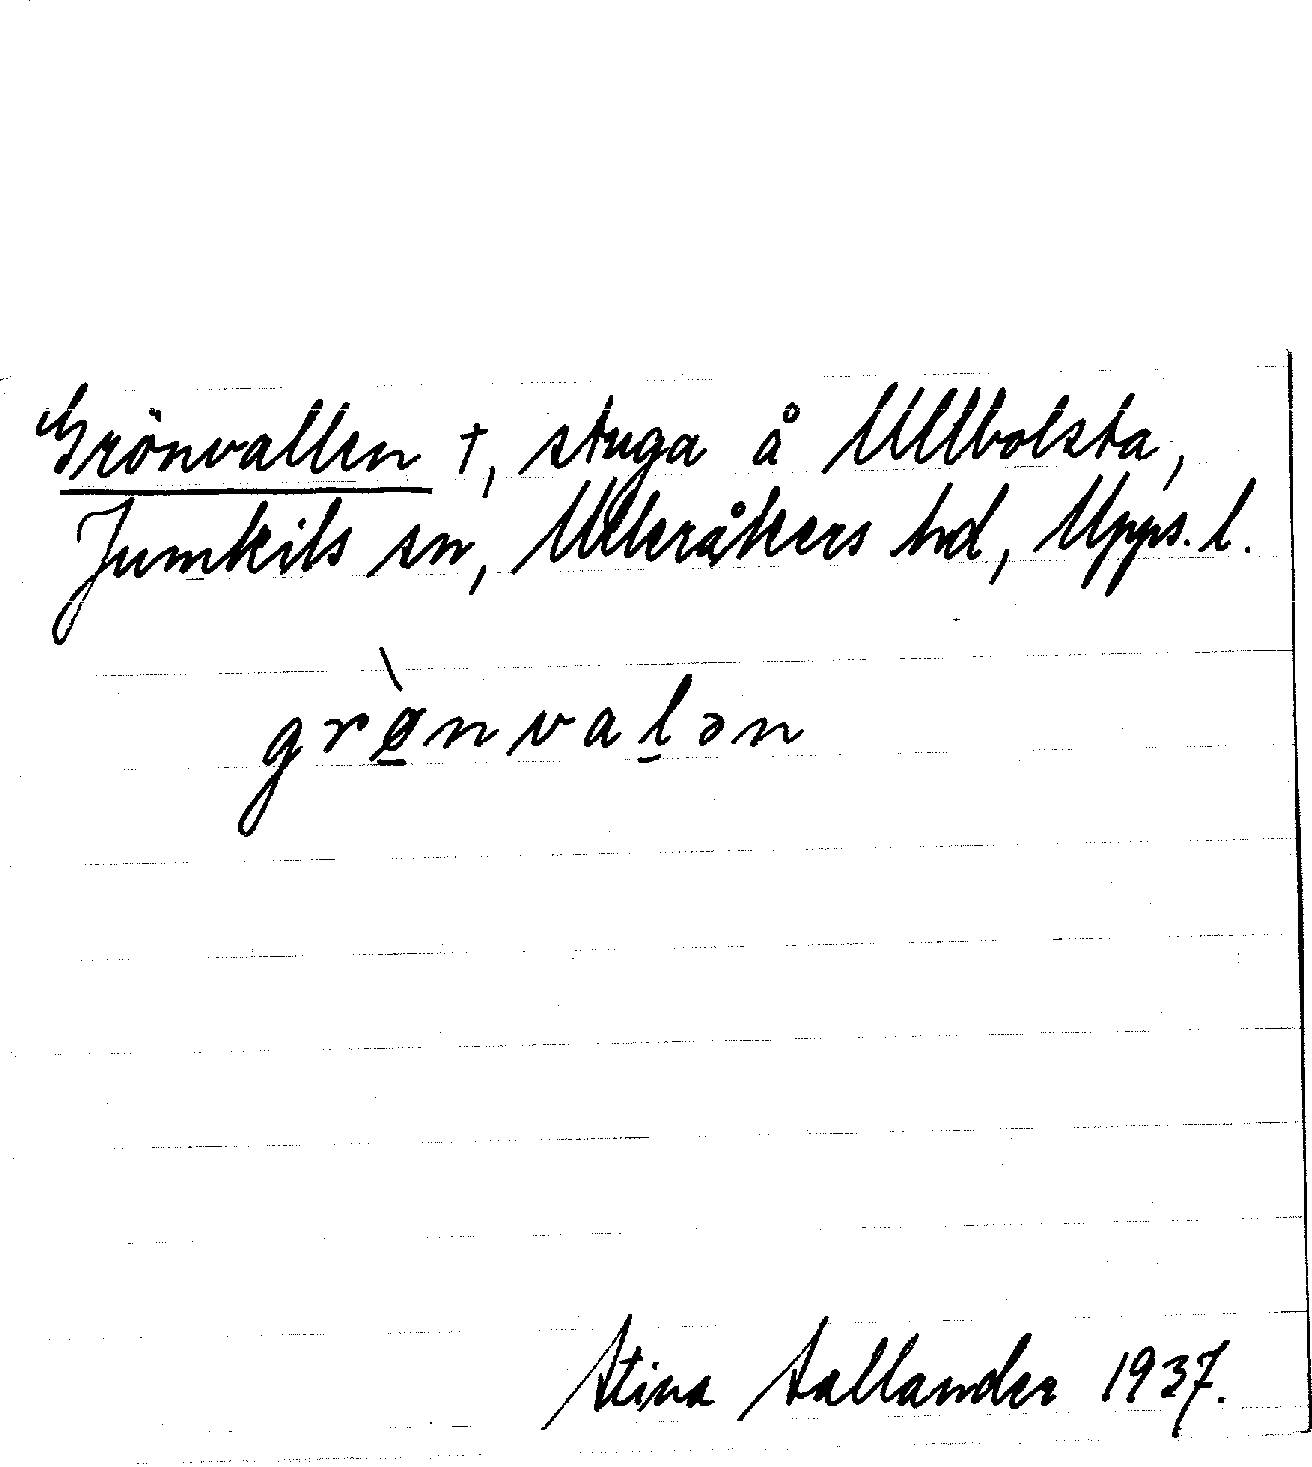 Grönvallen †, stuga å Ullbolsta,
Jumkils sn, Ulleråkers hd, Upps. l.
grø̱̀nval̠ən
Stina Sallander 1937.